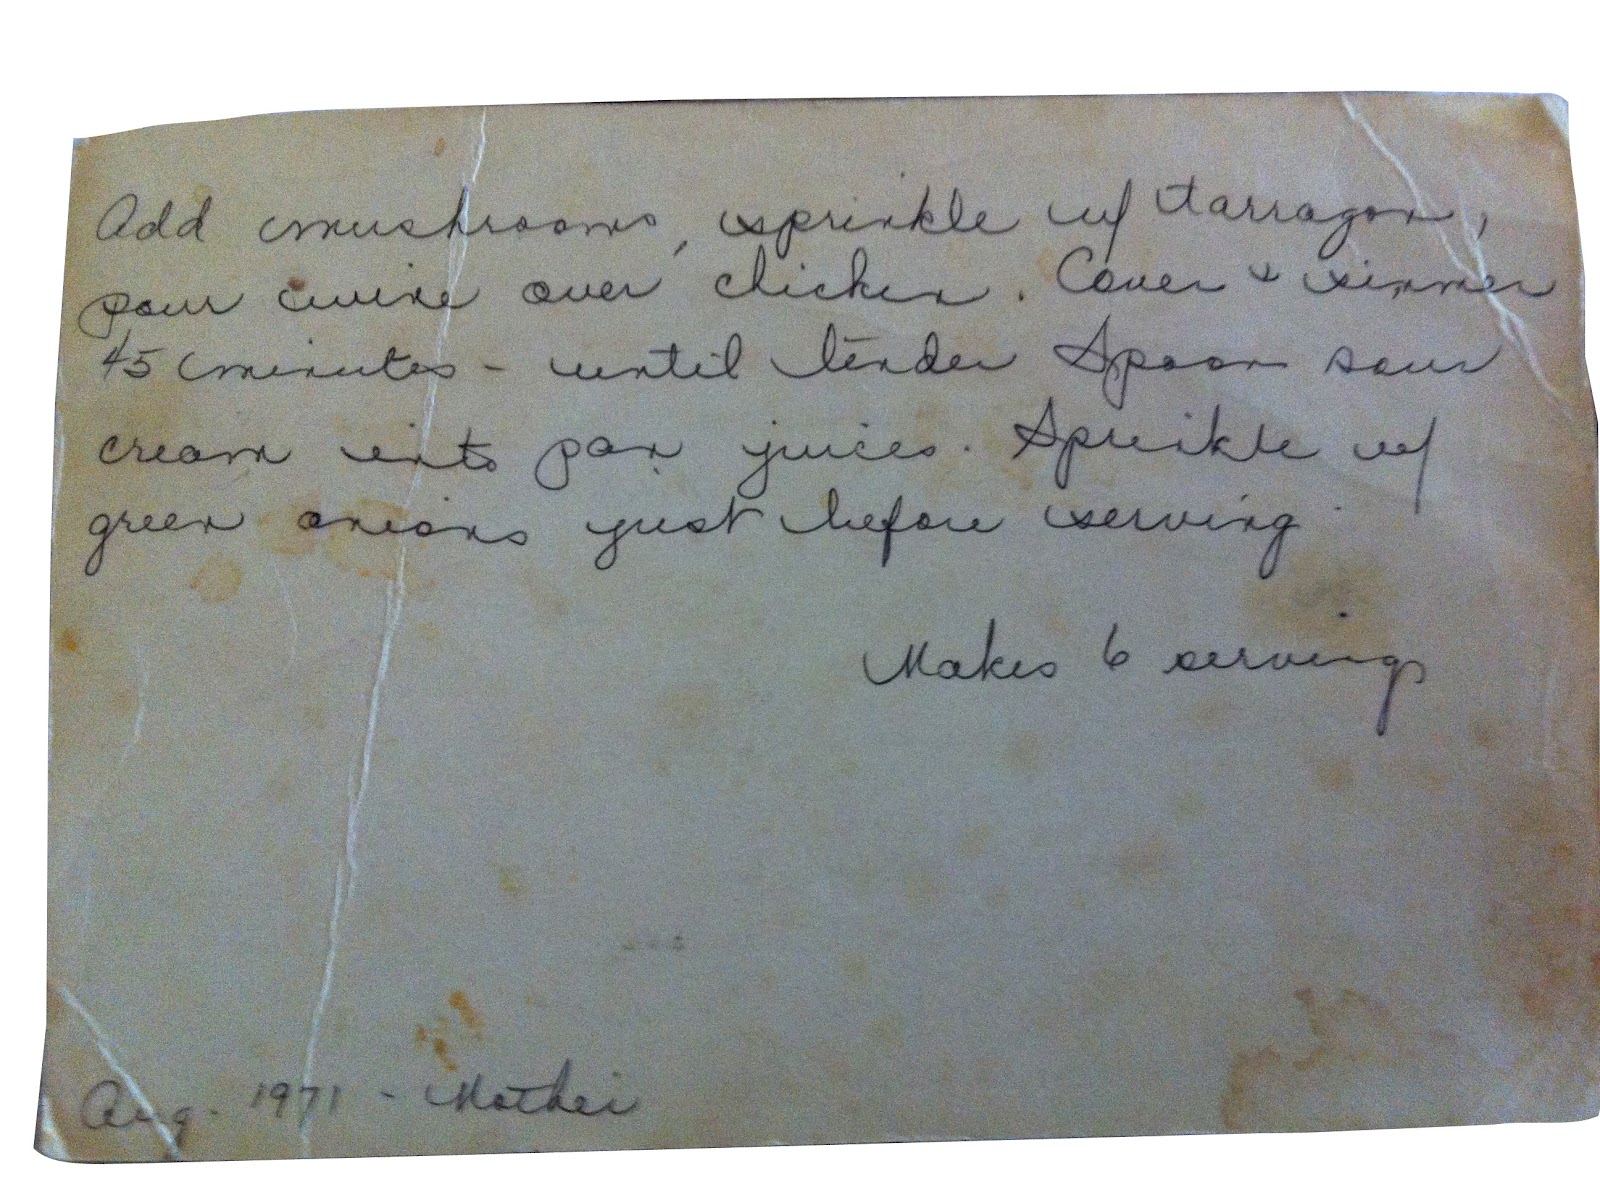 Add mushrooms, sprinkle w/ tarragon,
pour wine over chicken. Cover & simmer
45 minutes - until tender Spoon sour
cream into pan juices. Sprinkle w/
green onions just before serving.
Makes 6 servings
Aug. 1971 - Mother